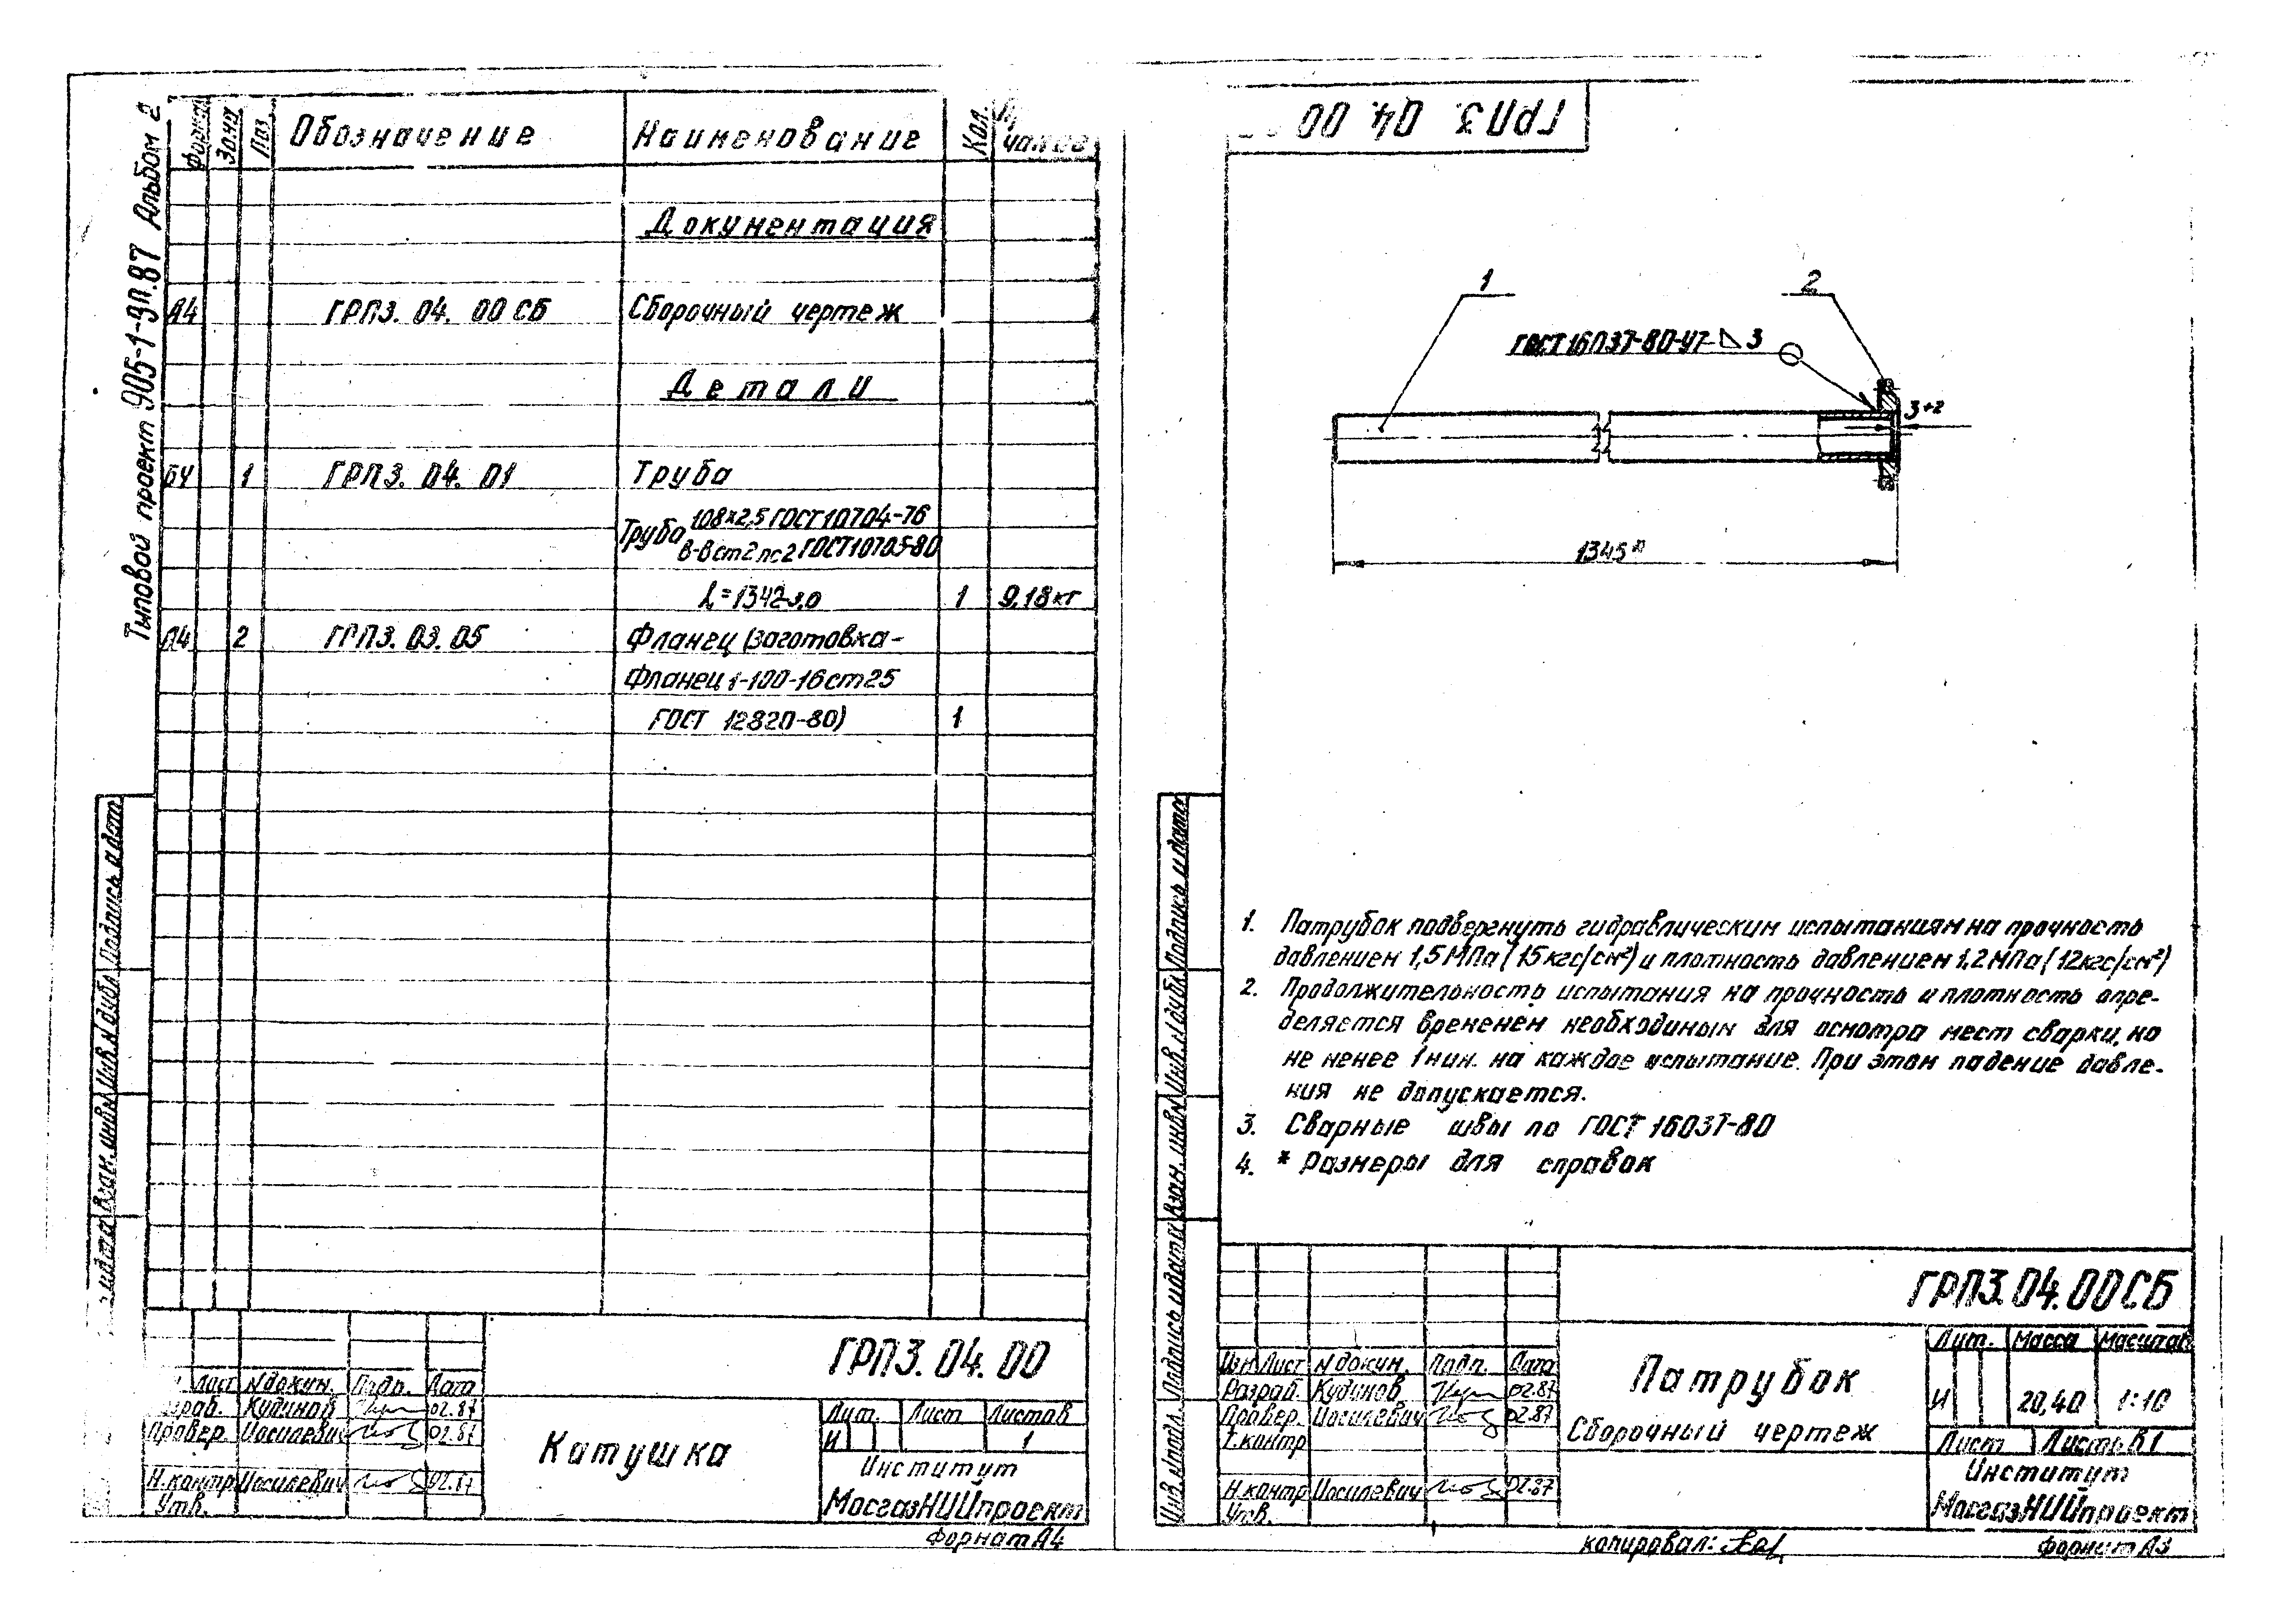 Типовой проект 905-1-9п.87 Альбом 2
Зона
Поз
Обозначение
Наименование
Кол.
Документация
А4 ГРПЗ. 04. 00 СБ Сборочный чертеж
Детали
БЧ 1 ГРПЗ. 04. 01 Труба
Труба 108×2,5 ГОСТ 10704-76
В-Вст2пс2 ГОСТ 10705-80
L=1342-3,0 1 9,18кг
А4 2 ГРПЗ. 03. 05 Фланец (заготовка-
Фланец 1-100-16 ст25
ГОСТ 12820-80) 1
Подпись и дата
Инв. N дубл
Взам. инв N
и дата
ГРПЗ. 04. 00
Лист N докум. Подп. Дата
Кудинов 02.87
Провер. Иосилевич 02.87
Н.контр Иосилевич 02.87
Утв.
Катушка
Лит. Лист Листов
И 1
Институт
МосгазНИИпроект
Формат А4
ГРПЗ. 04. 00
1
2
ГОСТ 16037-80-У7-◺3
3+2
1345*
1. Патрубок подвергнуть гидравлическим испытаниям на прочность
давлением 1,5 МПа (15 кгс/см²) и плотность давлением 1,2 МПа (12 кгс/см²)
2. Продолжительность испытания на прочность и плотность опре-
деляется временем необходимым для осмотра мест сварки, но
не менее 1 мин. на каждое испытание. При этом падение давле-
ния не допускается.
3. Сварные швы по ГОСТ 16037-80
4. * Размеры для справок
Подпись и дата
Инв. N дубл
Взам. инв N
Подпись и дата
Инв. N подл.
ГРПЗ.04.00СБ
Изм Лист N докум. Подп. Дата
Разраб. Кудинов 02.87
Провер. Иосилевич 02.87
Т.контр
Н.контр Иосилевич 02.87
Утв.
Патрубок
Сборочный чертеж
Лит. Масса Масштаб
И 20,40 1:10
Лист Листов 1
Институт
МосгазНИИпроект
копировал:
Формат А3